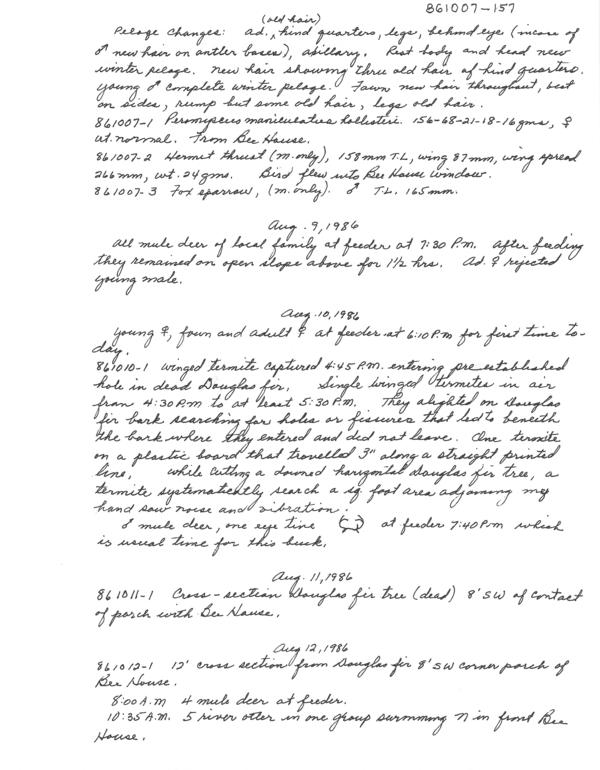 861007-157
(old hair)
Pelage changes: Ad. ^ hind quarters, legs, behind eye (incase of
♂ new hair on antler bases), axillary. Rest body and head new
winter pelage. New hair showing thru old hair of hind quarters.
Young ♂ complete winter pelage. Fawn new hair throughout, best
on sides, rump but some old hair, legs old hair.
861007-1 Peromyscus maniculatus hollisteri. 156-68-21-18-16 gms, ♀
ut. normal. From Bee House.
861007-2 Hermit thrust (m. only), 158 mm T.L, wing 87 mm, wing spread
266 mm, wt. 24 gms. Bird flew into Bee House window.
861007-3 Fox sparrow, (m. only). ♂ T.L. 165 mm.
Aug. 9, 1986
All mule deer of local family at feeder at 7:30 P.M. After feeding
they remained on open slope above for 1½ hrs. Ad. ♀ rejected
young male.
Aug. 10, 1986
Young ♀, fawn and adult ♀ at feeder at 6:10 P.M for first time to-
day.
861010-1 Winged termite captured 4:45 P.M. entering pre established
hole in dead Douglas fir. Single winged termites in air
from 4:30 P.M to at least 5:30 P.M. They alighted on Douglas
fir bark searching for holes or fissures that led to beneath
the bark where they entered and did not leave. One termite
on a plastic board that travelled 3" along a straight printed
line. While cutting a downed horizontal Douglas fir tree, a
termite systematically search a sq. foot area adjoining my
hand saw noise and vibration.
♂ mule deer, one eye tine at feeder 7:40 P.M which
is usual time for this buck.
Aug. 11, 1986
861011-1 Cross-section Douglas fir tree (dead) 8' SW of contact
of porch with Bee House.
Aug 12, 1986
861012-1 12' cross section from Douglas fir 8' SW corner porch of
Bee House.
8:00 A.M 4 mule deer at feeder.
10:35 A.M. 5 river otter in one group swimming N in front Bee
House.